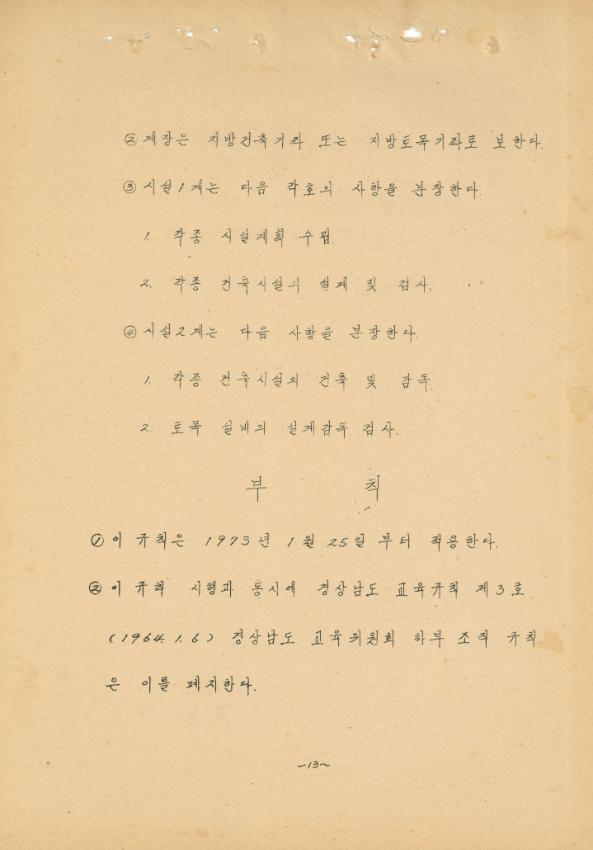 ②계장은 지방건축기좌 또는 지방토목기좌로 보한다.
③ 시설1계는 다음 각호의 사항을 분장한다.
1. 각종 시설계획 수립.
2. 각종 건축시설의 설계 및 검사.
④ 시설2계는 다음 사항을 분장한다.
1. 각종 건축시설의 건축 및 감독.
2. 토목 설비의 설계감독 검사.
부 칙
① 이 규칙은 1973년 1월 25일부터 적용한다.
② 이 규칙 시행과 동시에 경상남도 교육규칙 제3호
(1964. 1. 6) 경상남도 교육위원회 하부 조직 규칙
은 이를 폐지한다.
-13-